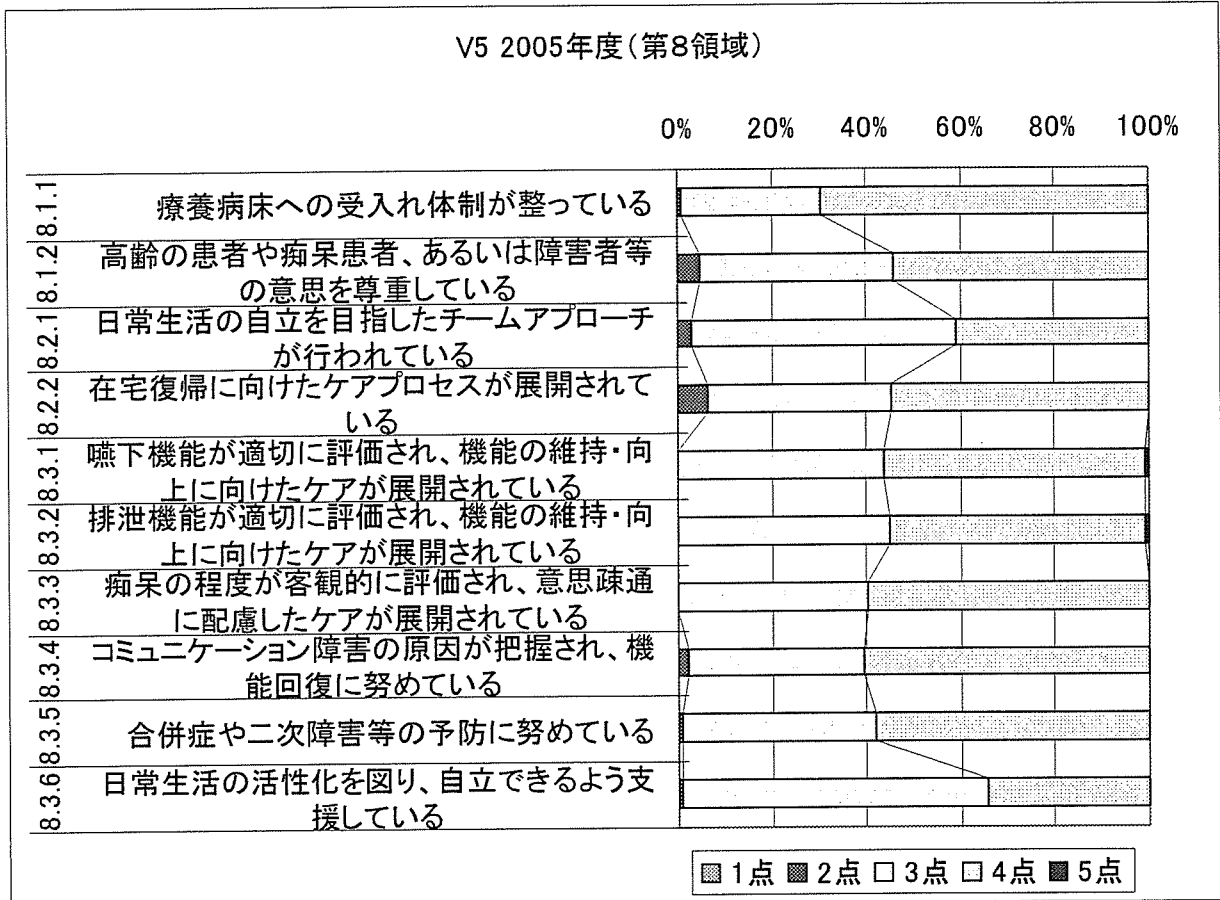 V5 2005年度(第8領域)
0% 20% 40% 60% 80% 100%
8.1.1 療養病床への受入れ体制が整っている
8.1.2 高齢の患者や痴呆患者、あるいは障害者等
の意思を尊重している
8.2.1 日常生活の自立を目指したチームアプローチ
が行われている
8.2.2 在宅復帰に向けたケアプロセスが展開されて
いる
8.3.1 嚥下機能が適切に評価され、機能の維持・向
上に向けたケアが展開されている
8.3.2 排泄機能が適切に評価され、機能の維持・向
上に向けたケアが展開されている
8.3.3 痴呆の程度が客観的に評価され、意思疎通
に配慮したケアが展開されている
8.3.4 コミュニケーション障害の原因が把握され、機
能回復に努めている
8.3.5 合併症や二次障害等の予防に努めている
8.3.6 日常生活の活性化を図り、自立できるよう支
援している
1点 2点 3点 4点 5点